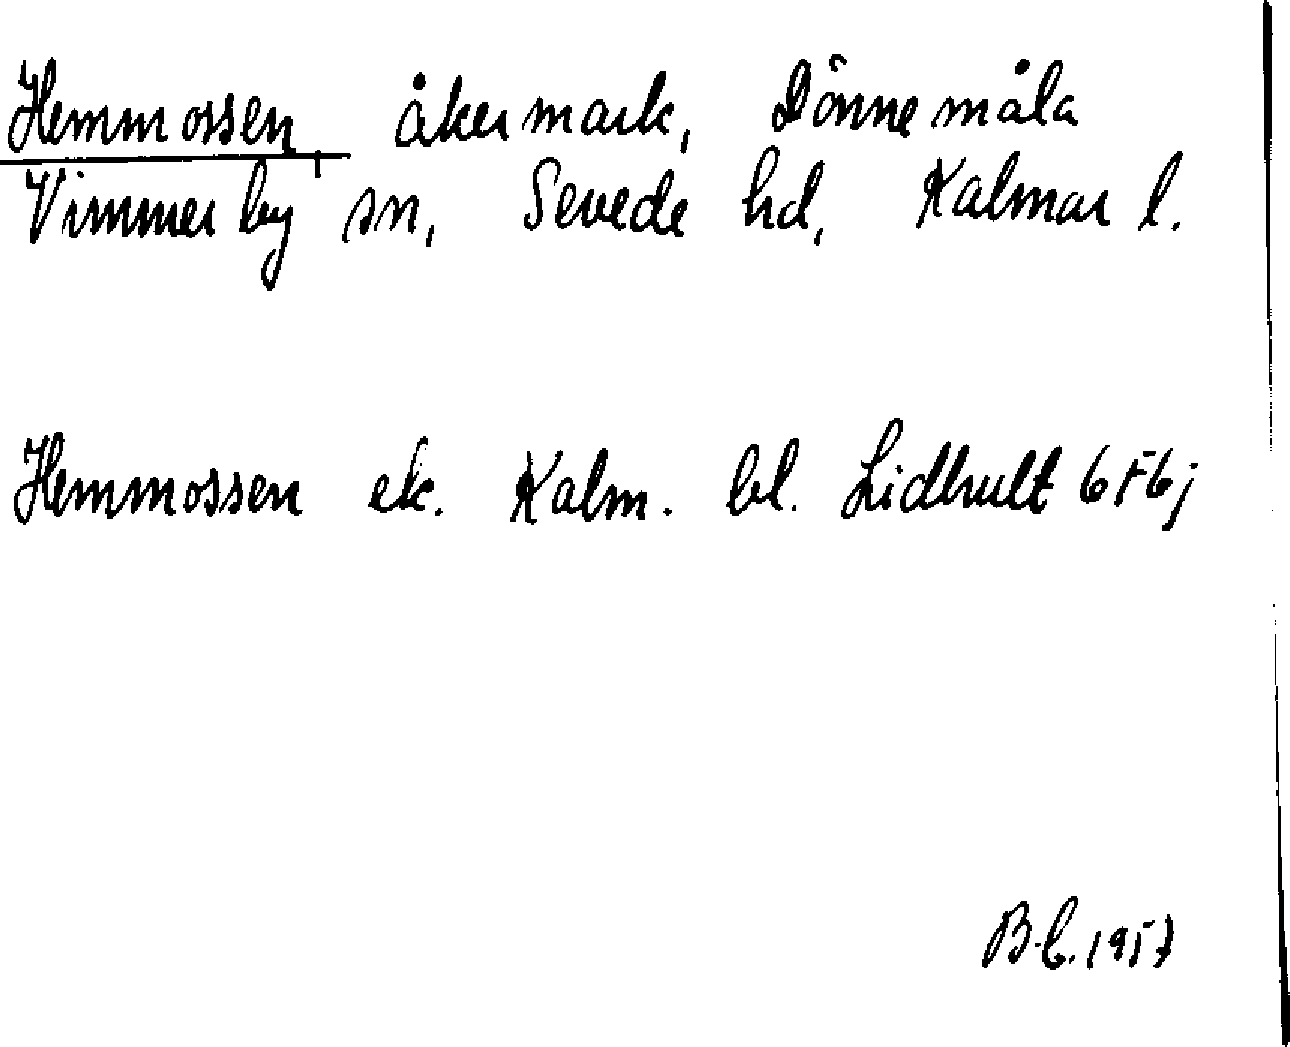 Hemmossen, åkermark, Dönnemåla
Vimmerby sn, Sevede hd, Kalmar l.
Hemmossen ek. Kalm. bl. Lidhult 6F6j
B-b. 1957